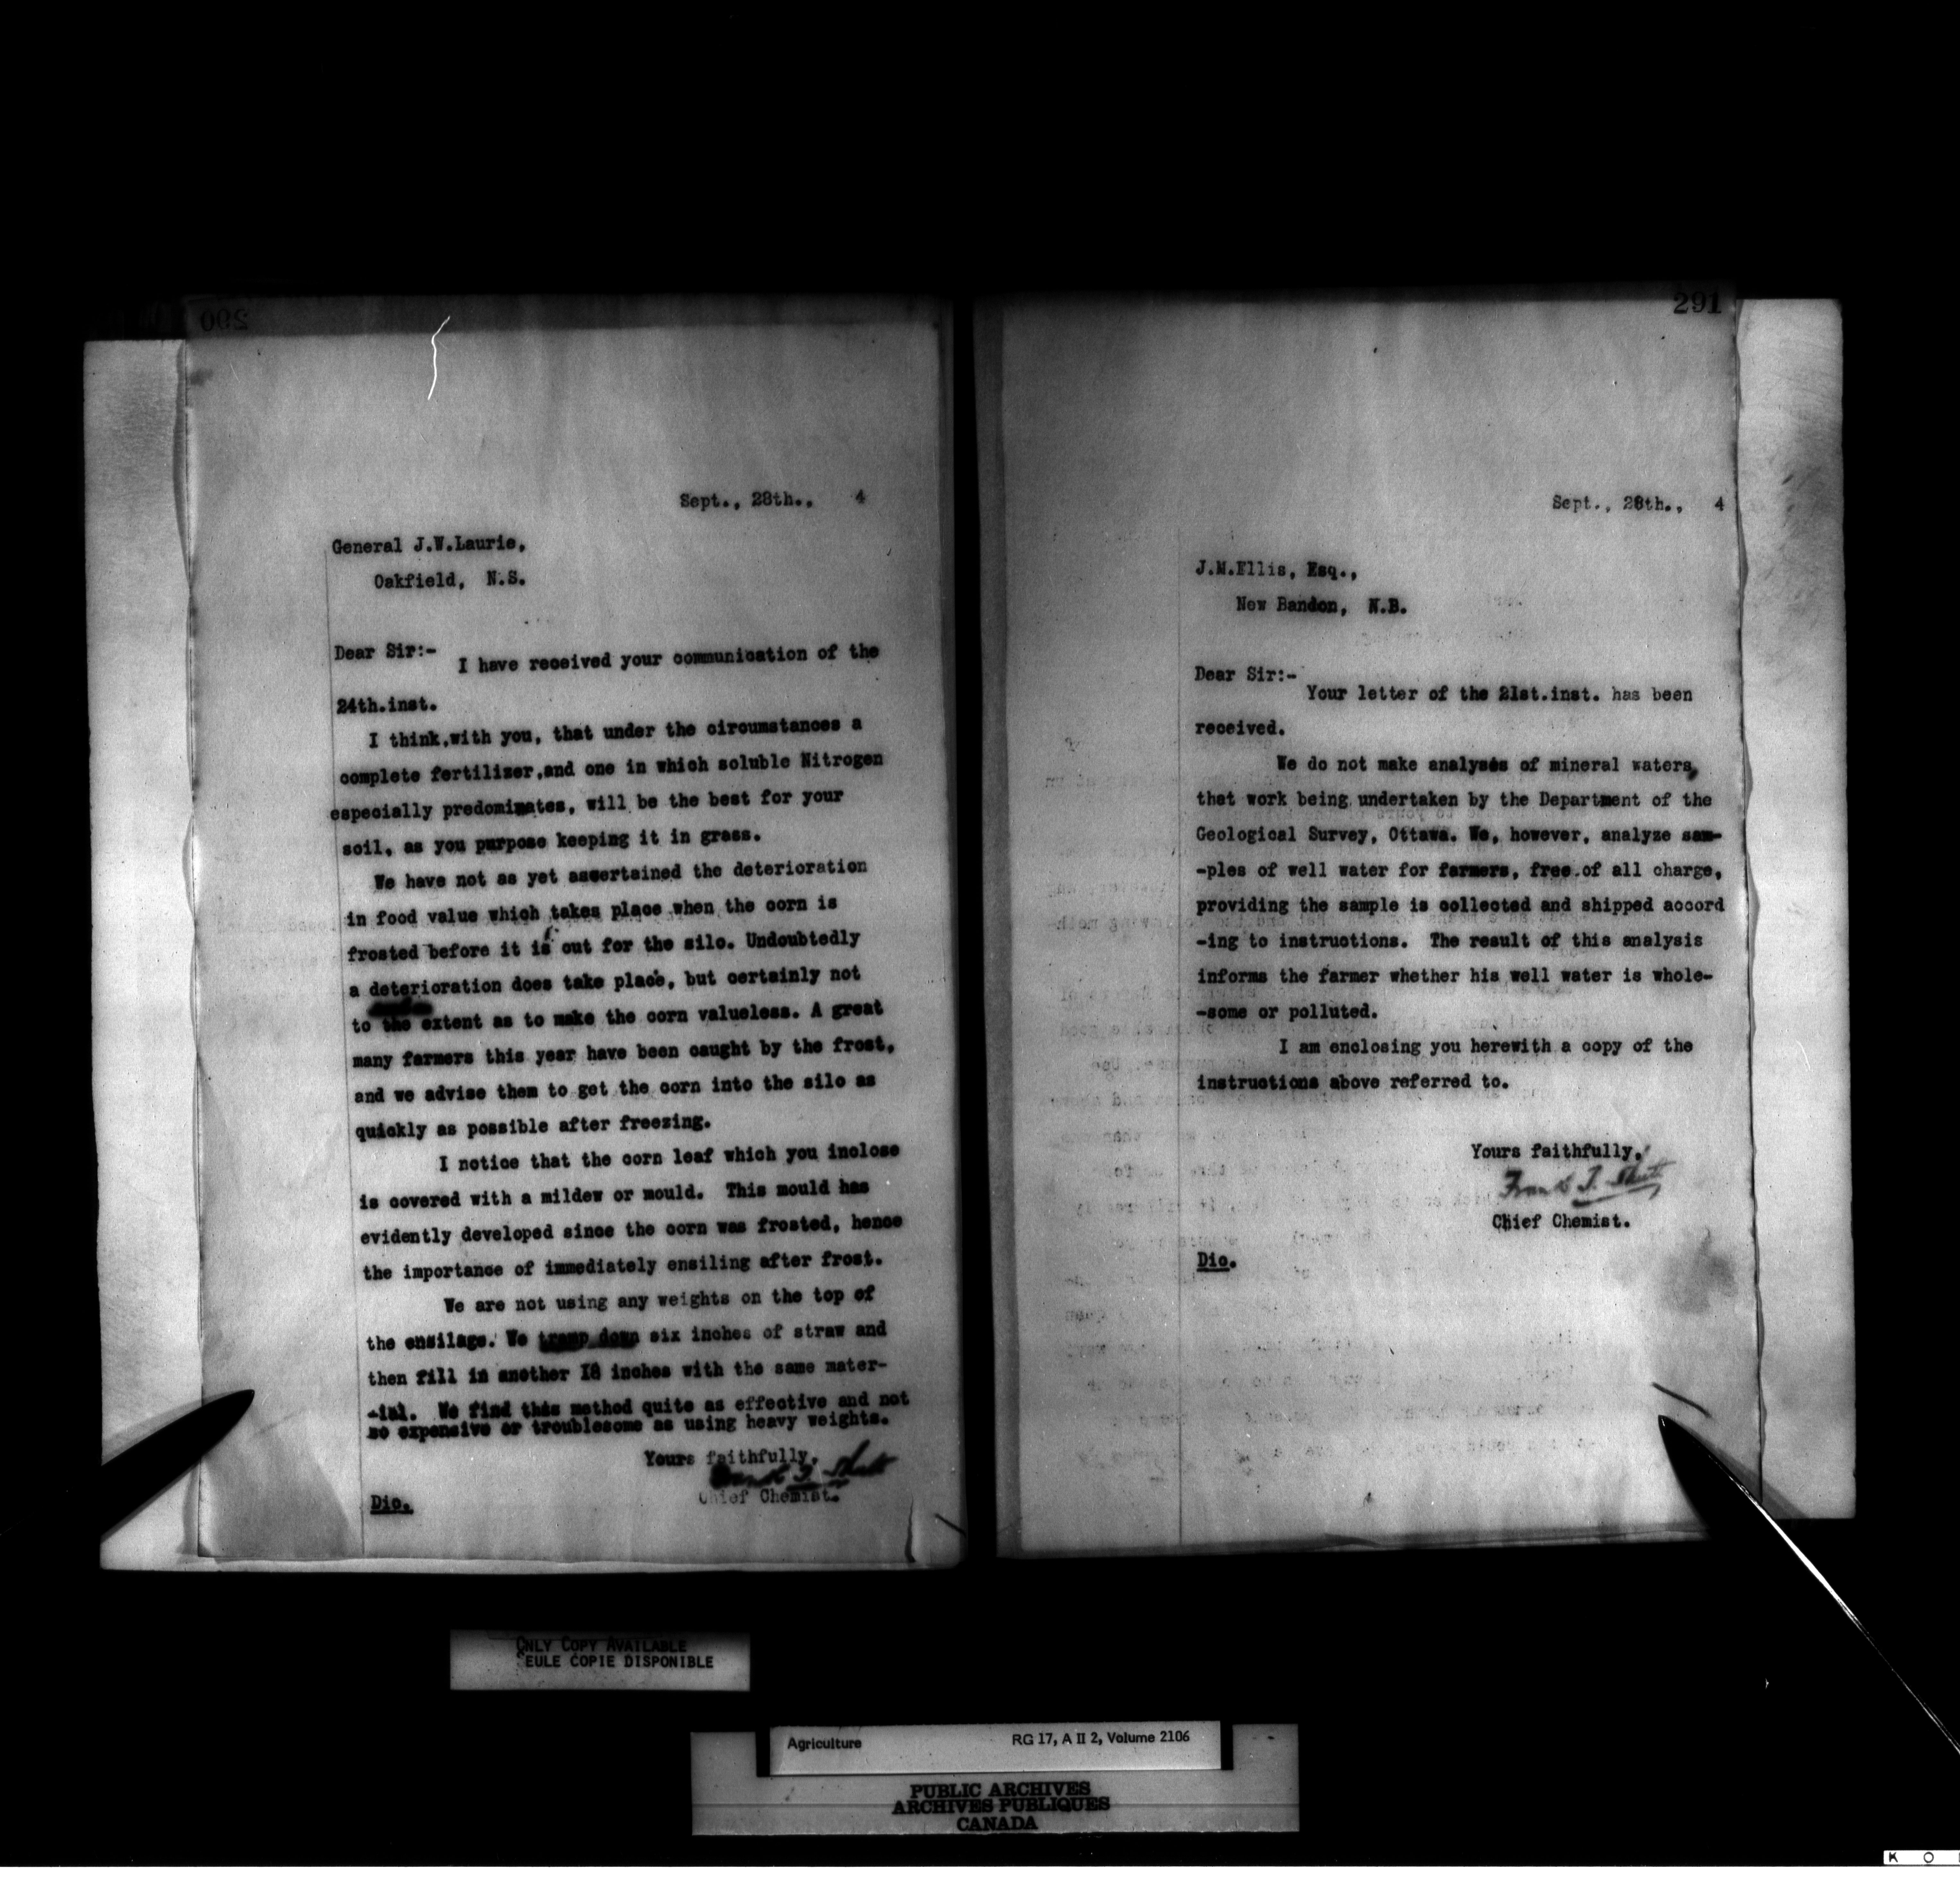 290
Sept., 28th., 4
General J.W.Laurie,
Oakfield, N.S.
Dear Sir:-
I have received your communication of the
24th.inst.
I think,with you, that under the circumstances a
complete fertilizer,and one in which soluble Nitrogen
especially predominates, will be the best for your
soil, as you purpose keeping it in grass.
We have not as yet ascertained the deterioration
in food value which takes place when the corn is
frosted before it is cut for the silo. Undoubtedly
a deterioration does take place, but certainly not
to the extent as to make the corn valueless. A great
many farmers this year have been caught by the frost,
and we advise them to get the corn into the silo as
quickly as possible after freezing.
I notice that the corn leaf which you inclose
is covered with a mildew or mould. This mould has
evidently developed since the corn was frosted, hence
the importance of immediately ensiling after frost.
We are not using any weights on the top of
the ensilage. We tramp down six inches of straw and
then fill in another 18 inches with the same mater-
-ial. We find this method quite as effective and not
so expensive or troublesome as using heavy weights.
Yours faithfully,
Frank T. Shutt
Chief Chemist.
Dic.
291
Sept., 28th., 4
J.M.Ellis, Esq.,
New Bandon, N.B.
Dear Sir:-
Your letter of the 21st.inst. has been
received.
We do not make analyses of mineral waters,
that work being undertaken by the Department of the
Geological Survey, Ottawa. We, however, analyze sam-
-ples of well water for farmers, free of all charge,
providing the sample is collected and shipped accord
-ing to instructions. The result of this analysis
informs the farmer whether his well water is whole-
-some or polluted.
I am enclosing you herewith a copy of the
instructions above referred to.
Yours faithfully,
Frank T. Shutt
Chief Chemist.
Dic.
ONLY COPY AVAILABLE
SEULE COPIE DISPONIBLE
Agriculture RG 17, A II 2, Volume 2106
PUBLIC ARCHIVES
ARCHIVES PUBLIQUES
CANADA
K O